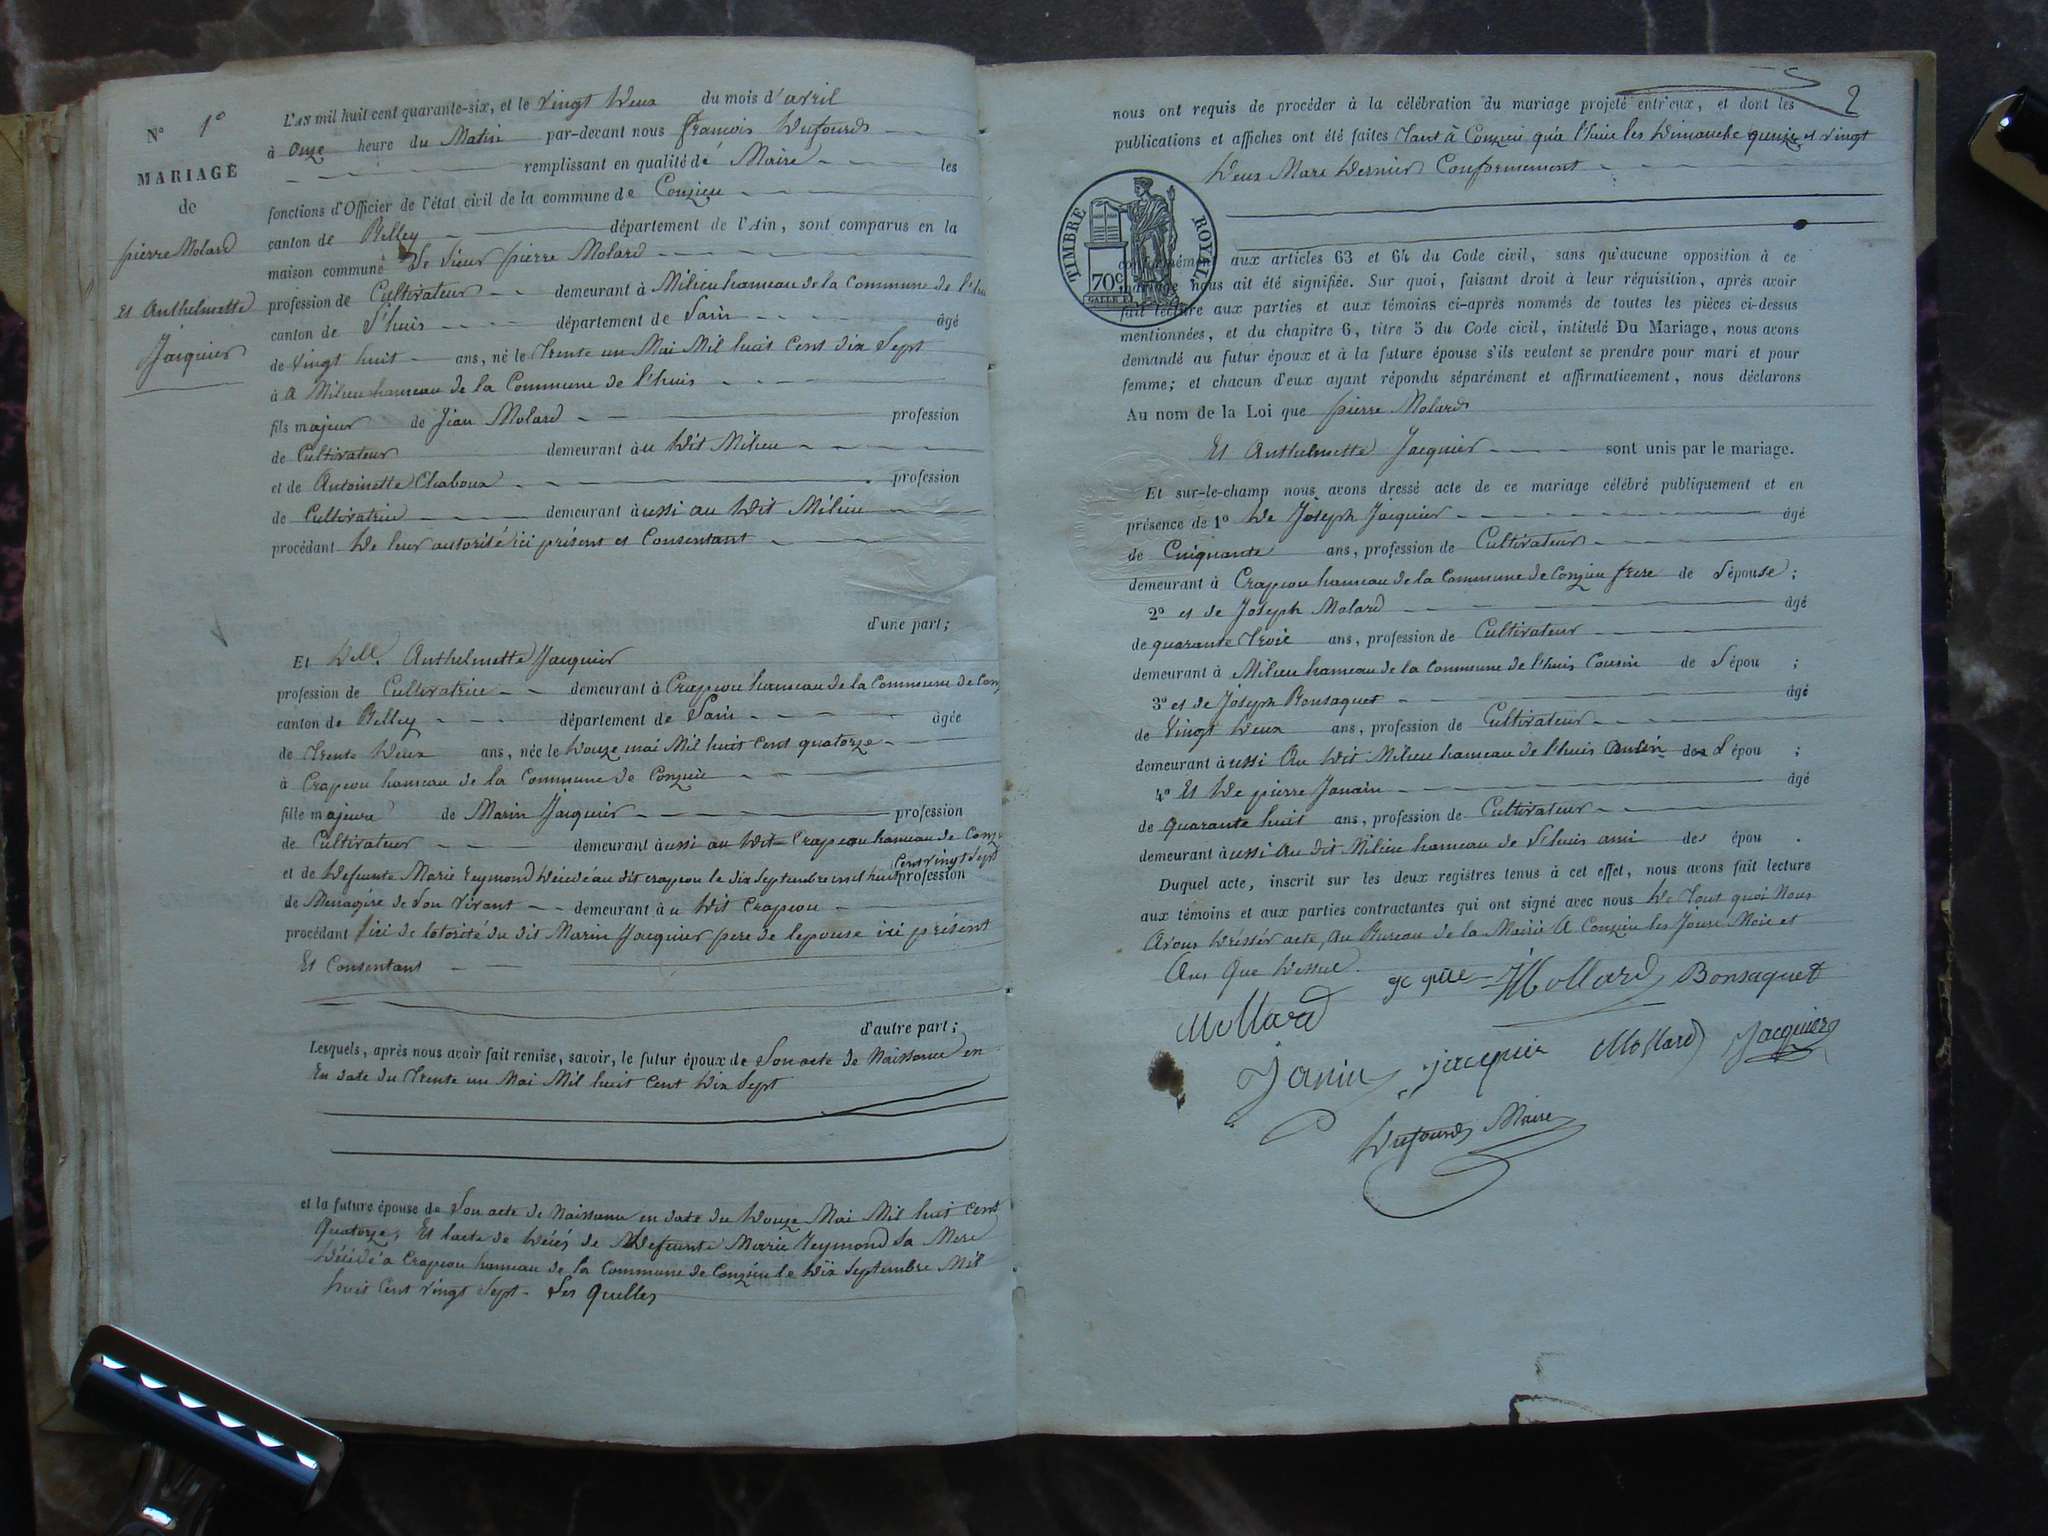 N° 1°
MARIAGE
de
pierre Molard
et Anthelmette
Jacquier
L'AN mil huit cent quarante-six, et le vingt Deux du mois d'avril
à onze heure du Matin par-devant nous françois Dufourd
remplissant en qualité de Maire les
fonctions d'Officier de l'état civil de la commune de Conzieu
canton de Belley département de l'Ain, sont comparus en la
maison commune Le Sieur pierre Molard
profession de Cultivateur demeurant à Milieu hameau de la Commune de l'hui
canton de L'huis département de Lain âgé
de vingt huit ans, né le Trente un Mai Mil huit Cent dix Sept
à A Milieu hameau de la Commune de l'huis
fils majeur de Jean Molard profession
de Cultivateur demeurant àu Dit Milieu
et de Antoinette Chaboux profession
de Cultivatrice demeurant àussi au Dit Milieu
procédant De leur autorité ici présent et Consentant
d'une part;
Et Dell. Anthelmette Jacquier
profession de Cultivatrice demeurant à Crapeou hameau de la Commune de Conz
canton de Belley département de Lain âgée
de Trente Deux ans, née le Douze mai Mil huit Cent quatorze
à Crapeou hameau de la Commune de Conzieu
fille majeure de Marin Jacquier profession
de Cultivateur demeurant àussi au Dit Crapeou hameau de Conz
Cent vingt Sept
et de Defeunte Marie Reymond Déicdé au dit crapeou le dix Septembre mil huit profession
de Menagère de Son vivant demeurant àu Dit Crapeou
procédant ici de lotorité du dit Marin Jacquier pere de lepouse ici présent
Et Consentant
d'autre part;
Lesquels, après nous avoir fait remise, savoir, le futur époux de Son acte de Naissance en
En date du Trente un Mai Mil huit Cent Dix Sept
et la future épouse de Son acte de Naissance en date du Douze Mai Mil huit Cent
Quatorze, Et lacte de Décés de Defeunte Marie Reymond Sa Mere
Décédé à Crapeou hameau de la Commune de Conzieu le Dix Septembre Mil
huit Cent vingt Sept. Les Quelles
2
nous ont requis de procéder à la célébration du mariage projeté entr'eux, et dont les
publications et affiches ont été faites Tant à Conzieu qu'à l'huis les Dimanche quinze et vingt
Deux Mars Dernier Conformement
TIMBRE ROYAL
70c
conformément aux articles 63 et 64 du Code civil, sans qu'aucune opposition à ce
mariage nous ait été signifiée. Sur quoi, faisant droit à leur réquisition, après avoir
fait lecture aux parties et aux témoins ci-après nommés de toutes les pièces ci-dessus
mentionnées, et du chapitre 6, titre 5 du Code civil, intitulé Du Mariage, nous avons
demandé au futur époux et à la future épouse s'ils veulent se prendre pour mari et pour
femme; et chacun d'eux ayant répondu séparément et affirmativement, nous déclarons
Au nom de la Loi que pierre Molard
Et Anthelmette Jacquier sont unis par le mariage.
Et sur-le-champ nous avons dressé acte de ce mariage célébré publiquement et en
présence de 1° De Joseph Jacquier âgé
de Cinquante ans, profession de Cultivateur
demeurant à Crapeou hameau de la Commune de Conzieu frere de Lépouse;
2° et de Joseph Molard âgé
de quarante Trois ans, profession de Cultivateur
demeurant à Milieu hameau de la Commune de l'huis Cousin de Lépou ;
3° et de Joseph Bonsaquet âgé
de Vingt Deux ans, profession de Cultivateur
demeurant àussi Au Dit Milieu hameau de l'huis Cousin de Lépou ;
4° Et De pierre Janain âgé
de Quarante huit ans, profession de Cultivateur
demeurant àussi Au dit Milieu hameau de L'huis ami des épou .
Duquel acte, inscrit sur les deux registres tenus à cet effet, nous avons fait lecture
aux témoins et aux parties contractantes qui ont signé avec nous De Tout quoi Nous
Avons Dréssér acte, Au Bureau de la Mairie A Conzieu les Jours Mois et
Ans Que Dessue.
Mollard Bonsaquet
Mollard
Janin jacquier Mollard Jacquier
Dufourd Maire